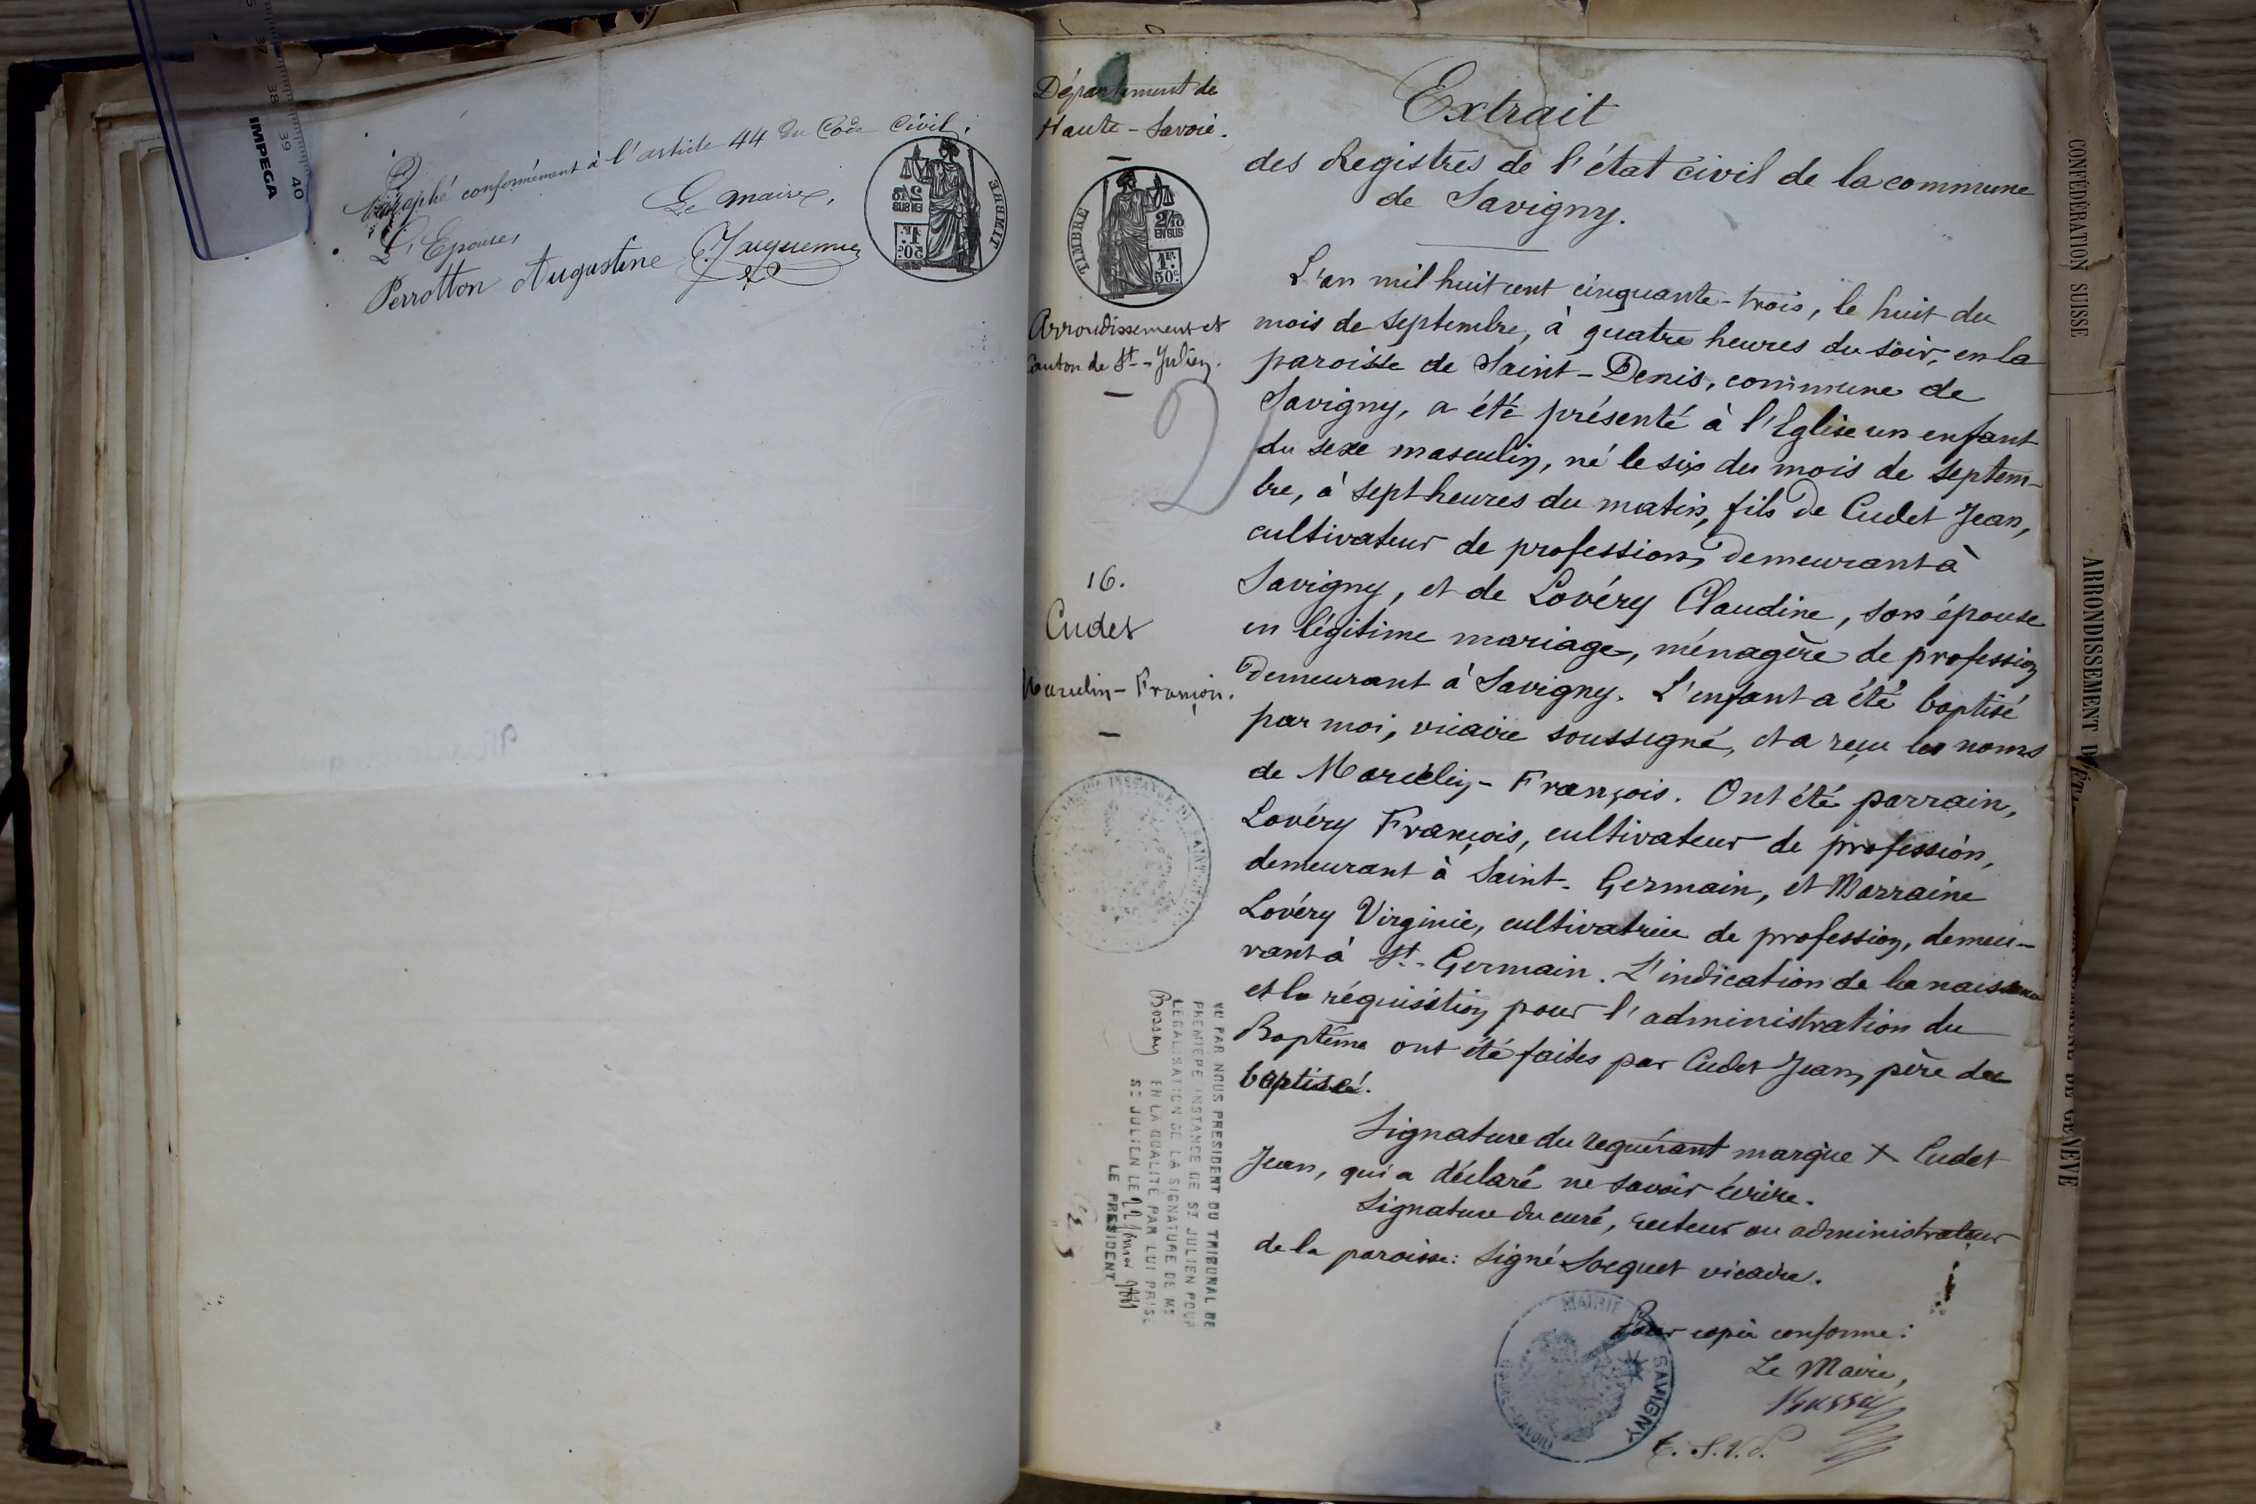 Paraphé conformément à l'article 44 du Code Civil.
Le Maire,
L'Epouse,
Perrotton Augustine
TIMBRE
2/10
EN SUS
1F.
50c.
37 38 39 40
IMPEGA
Département de
Haute-Savoie.
TIMBRE
2/10
EN SUS
1F.
50c.
Arrondissement et
Canton de St-Julien.
2
16.
Cudet
Marcelin-François.
VU PAR NOUS PRESIDENT DU TRIBUNAL DE
PREMIERE INSTANCE DE ST JULIEN POUR
LEGALISATION DE LA SIGNATURE DE MR
EN LA QUALITE PAR LUI PRISE
ST JULIEN LE
LE PRESIDENT
Extrait
des Registres de l'état civil de la commune
de Savigny.
L'an mil huit cent cinquante-trois, le huit du
mois de septembre, à quatre heures du soir, en la
paroisse de Saint-Denis, commune de
Savigny, a été présenté à l'Eglise un enfant
du sexe masculin, né le six du mois de septem-
bre, à sept heures du matin, fils de Cudet Jean,
cultivateur de profession, demeurant à
Savigny, et de Lovéry Claudine, son épouse
en légitime mariage, ménagère de profession
demeurant à Savigny. L'enfant a été baptisé
par moi, vicaire soussigné, et a reçu les noms
de Marcelin-François. Ont été parrain,
Lovéry François, cultivateur de profession,
demeurant à Saint-Germain, et Marraine
Lovéry Virginie, cultivatrice de profession, demeu-
rant à St-Germain. L'indication de la naissance
et la réquisition pour l'administration du
Baptême ont été faites par Cudet Jean, père du
baptisé.
Signature du requérant marque X Cudet
Jean, qui a déclaré ne savoir écrire.
Signature du curé, recteur ou administrateur
de la paroisse: Signé Socquet vicaire.
Pour copie conforme:
Le Maire,
T.S.V.P.
MAIRIE SAVIGNY
CONFÉDÉRATION SUISSE
ARRONDISSEMENT
GENÈVE